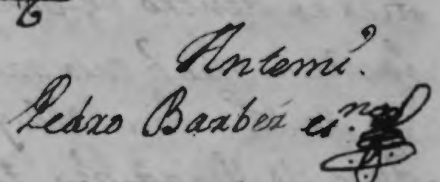 Antemí.
Pedro Barber es.no